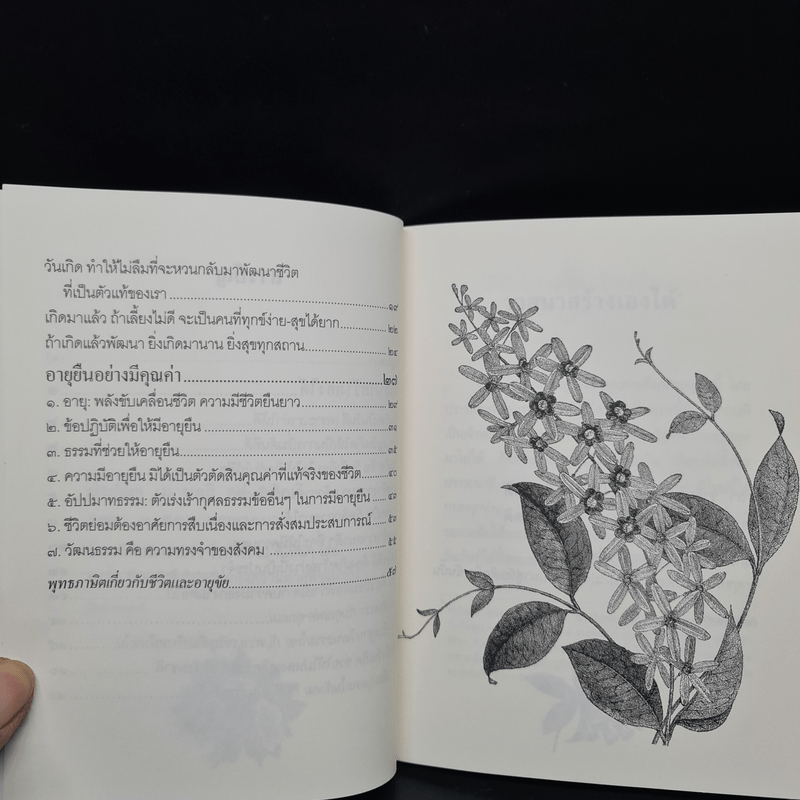 วันเกิด ทำให้ไม่ลืมที่จะหวนกลับมาพัฒนาชีวิต
ที่เป็นตัวแท้ของเรา ... ๑๙
เกิดมาแล้ว ถ้าเลี้ยงไม่ดี จะเป็นคนที่ทุกข์ง่าย-สุขได้ยาก ... ๒๒
ถ้าเกิดแล้วพัฒนา ยิ่งเกิดมานาน ยิ่งสุขทุกสถาน ... ๒๔
อายุยืนอย่างมีคุณค่า ... ๒๗
๑. อายุ: พลังขับเคลื่อนชีวิต ความมีชีวิตยืนยาว ... ๒๙
๒. ข้อปฏิบัติเพื่อให้มีอายุยืน ... ๓๑
๓. ธรรมที่ช่วยให้อายุยืน ... ๓๕
๔. ความมีอายุยืน มิได้เป็นตัวตัดสินคุณค่าที่แท้จริงของชีวิต ... ๔๐
๕. อัปปมาทธรรม: ตัวเร่งเร้ากุศลธรรมข้ออื่นๆ ในการมีอายุยืน ...
๖. ชีวิตย่อมต้องอาศัยการสืบเนื่องและการสั่งสมประสบการณ์ ... ๕๓
๗. วัฒนธรรม คือ ความทรงจำของสังคม ... ๕๕
พุทธภาษิตเกี่ยวกับชีวิตและอายุขัย ... ๕๗